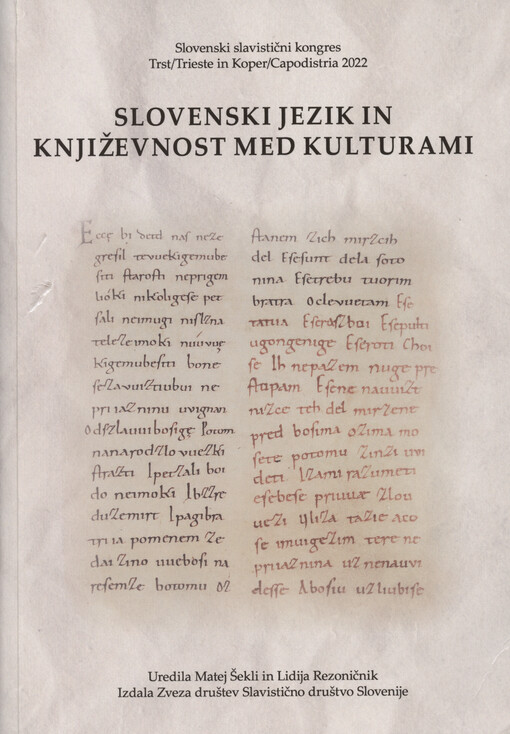 Slovenski slavistični kongres
Trst/Trieste in Koper/Capodistria 2022
SLOVENSKI JEZIK IN
KNJIŽEVNOST MED KULTURAMI
Ecce bi detd naſ neze
greſil tevuekigemube
ſiti ſtaroſti neprigem
lióki nikoligeſe pet
ſali neimugi niſlzna
teleze imoki nuúvuę
kigemubeſiti bone
ſezavuiztiubui ne
priiazninu uvignan
Odſzlauui boſigę Potom
nanarodzlovuezki
ſtraſti Ipetzali boi
do neimoki Ibzzre
duzemirt Ipagibra
triia pomenem ze
dai zino vueboſi na
reſemze botomu oz
ſtanem zich mirzcih
del Eſeſunt dela ſoto
nina Eſetrebu tuorim
bratra Oclevuetam Eſe
tatua Eſeraszboi Eſepulti
ugongenige Eſeroti Choi
ſe Ih nepazem nuge pre
ſtupam Eſene nauuizt
nizce teh del mirzene
pred boſima ozima mo
ſete potomu zinzi uvi
deti Izami razumeti
eſebeſe priuuae zlou
uezi Uliza tazie aco
ſe imuigezim tere ne
priiaznina uznenauvi
deſſe Aboſiu uzliubiſe
Uredila Matej Šekli in Lidija Rezoničnik
Izdala Zveza društev Slavistično društvo Slovenije